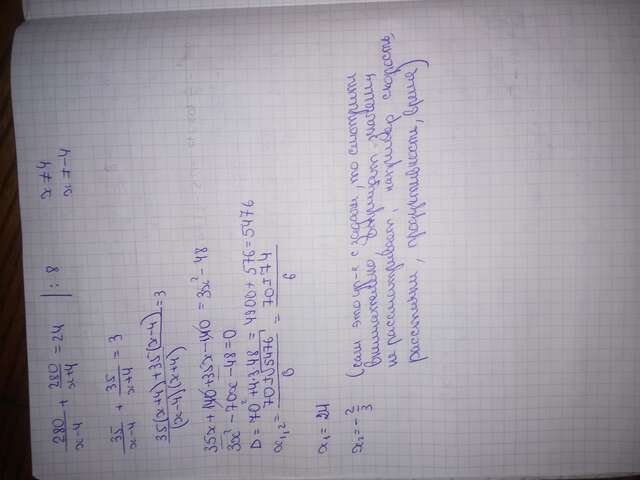 280/(x-4) + 280/(x+4) = 24 | : 8 x ≠ 4
x ≠ -4
35/(x-4) + 35/(x+4) = 3
(35(x+4)+35(x-4))/((x-4)(x+4)) = 3
35x+140+35x-140 = 3x²-48
3x²-70x-48=0
D = 70²+4·3·48 = 4900+576=5476
x₁,₂ = (70±√5476)/6 = (70±74)/6
x₁ = 24
x₂ = -2/3
(если это ур-я с задачи, то смотрите
внимательно,
не рассматривают, например скорость,
расстояния, продуктивности, время)